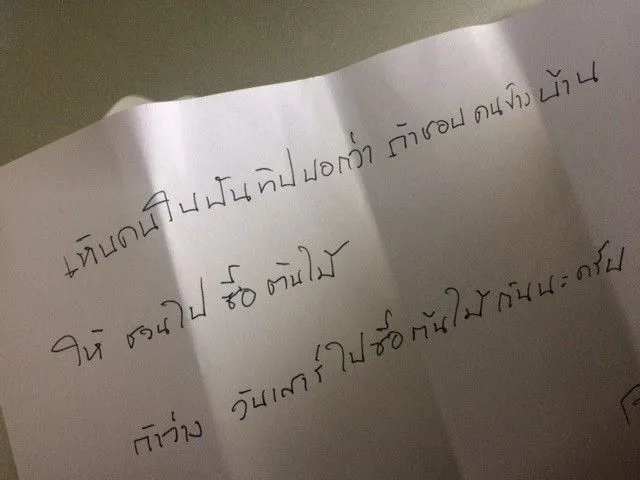 เห็นคนในพันทิปบอกว่า ถ้าชอบคนข้างบ้าน
ให้ ชวนไป ซื้อ ต้นไม้
ถ้าว่าง วันเสาร์ ไปซื้อต้นไม้ กันนะครับ